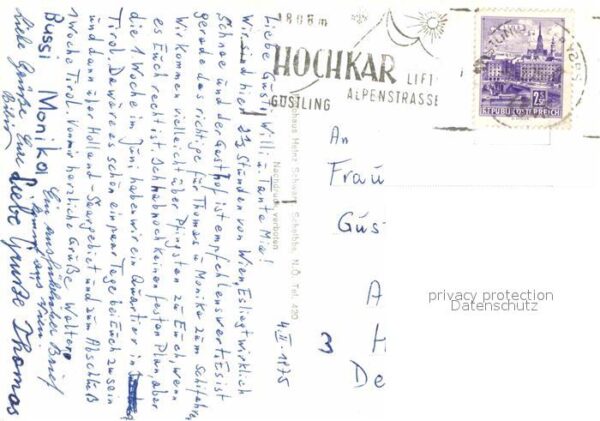 4.II.1975
Liebe Gusti, Willi u. Tante Mia!
Wir sind hier 2½ Stunden von Wien. Es liegt wirklich
Schnee und der Gasthof ist empfehlenswert. Es ist
gerade das richtige für Thomas u. Monika zum Schifahren
Wir kommen vielleicht über Pfingsten zu Euch, wenn
es Euch recht ist. Ich hab noch keinen festen Plan, aber
die 1 Woche im Juni haben wir ein Quartier in
Tirol. Da wäre es schön ein paar Tage bei Euch zu sein
und dann über Holland - Saargebiet und zum Abschluß
1 Woche Tirol. Von mir herzliche Grüße Walter
Bussi Monika Ein ausführlicher Brief
kommt aus Wien.
Liebe Grüße Eure
Liebe Grüsse Thomas
Heinz Schw Scheibbs, N.Ö. Tel. 420
Nachdruck verboten
1808m
HOCHKAR LIFT
ALPENSTRASSE
GÖSTLING
2S
REPUBLIK ÖSTERREICH
An
Frau
Gus
A
3 H
De
privacy protection
Datenschutz